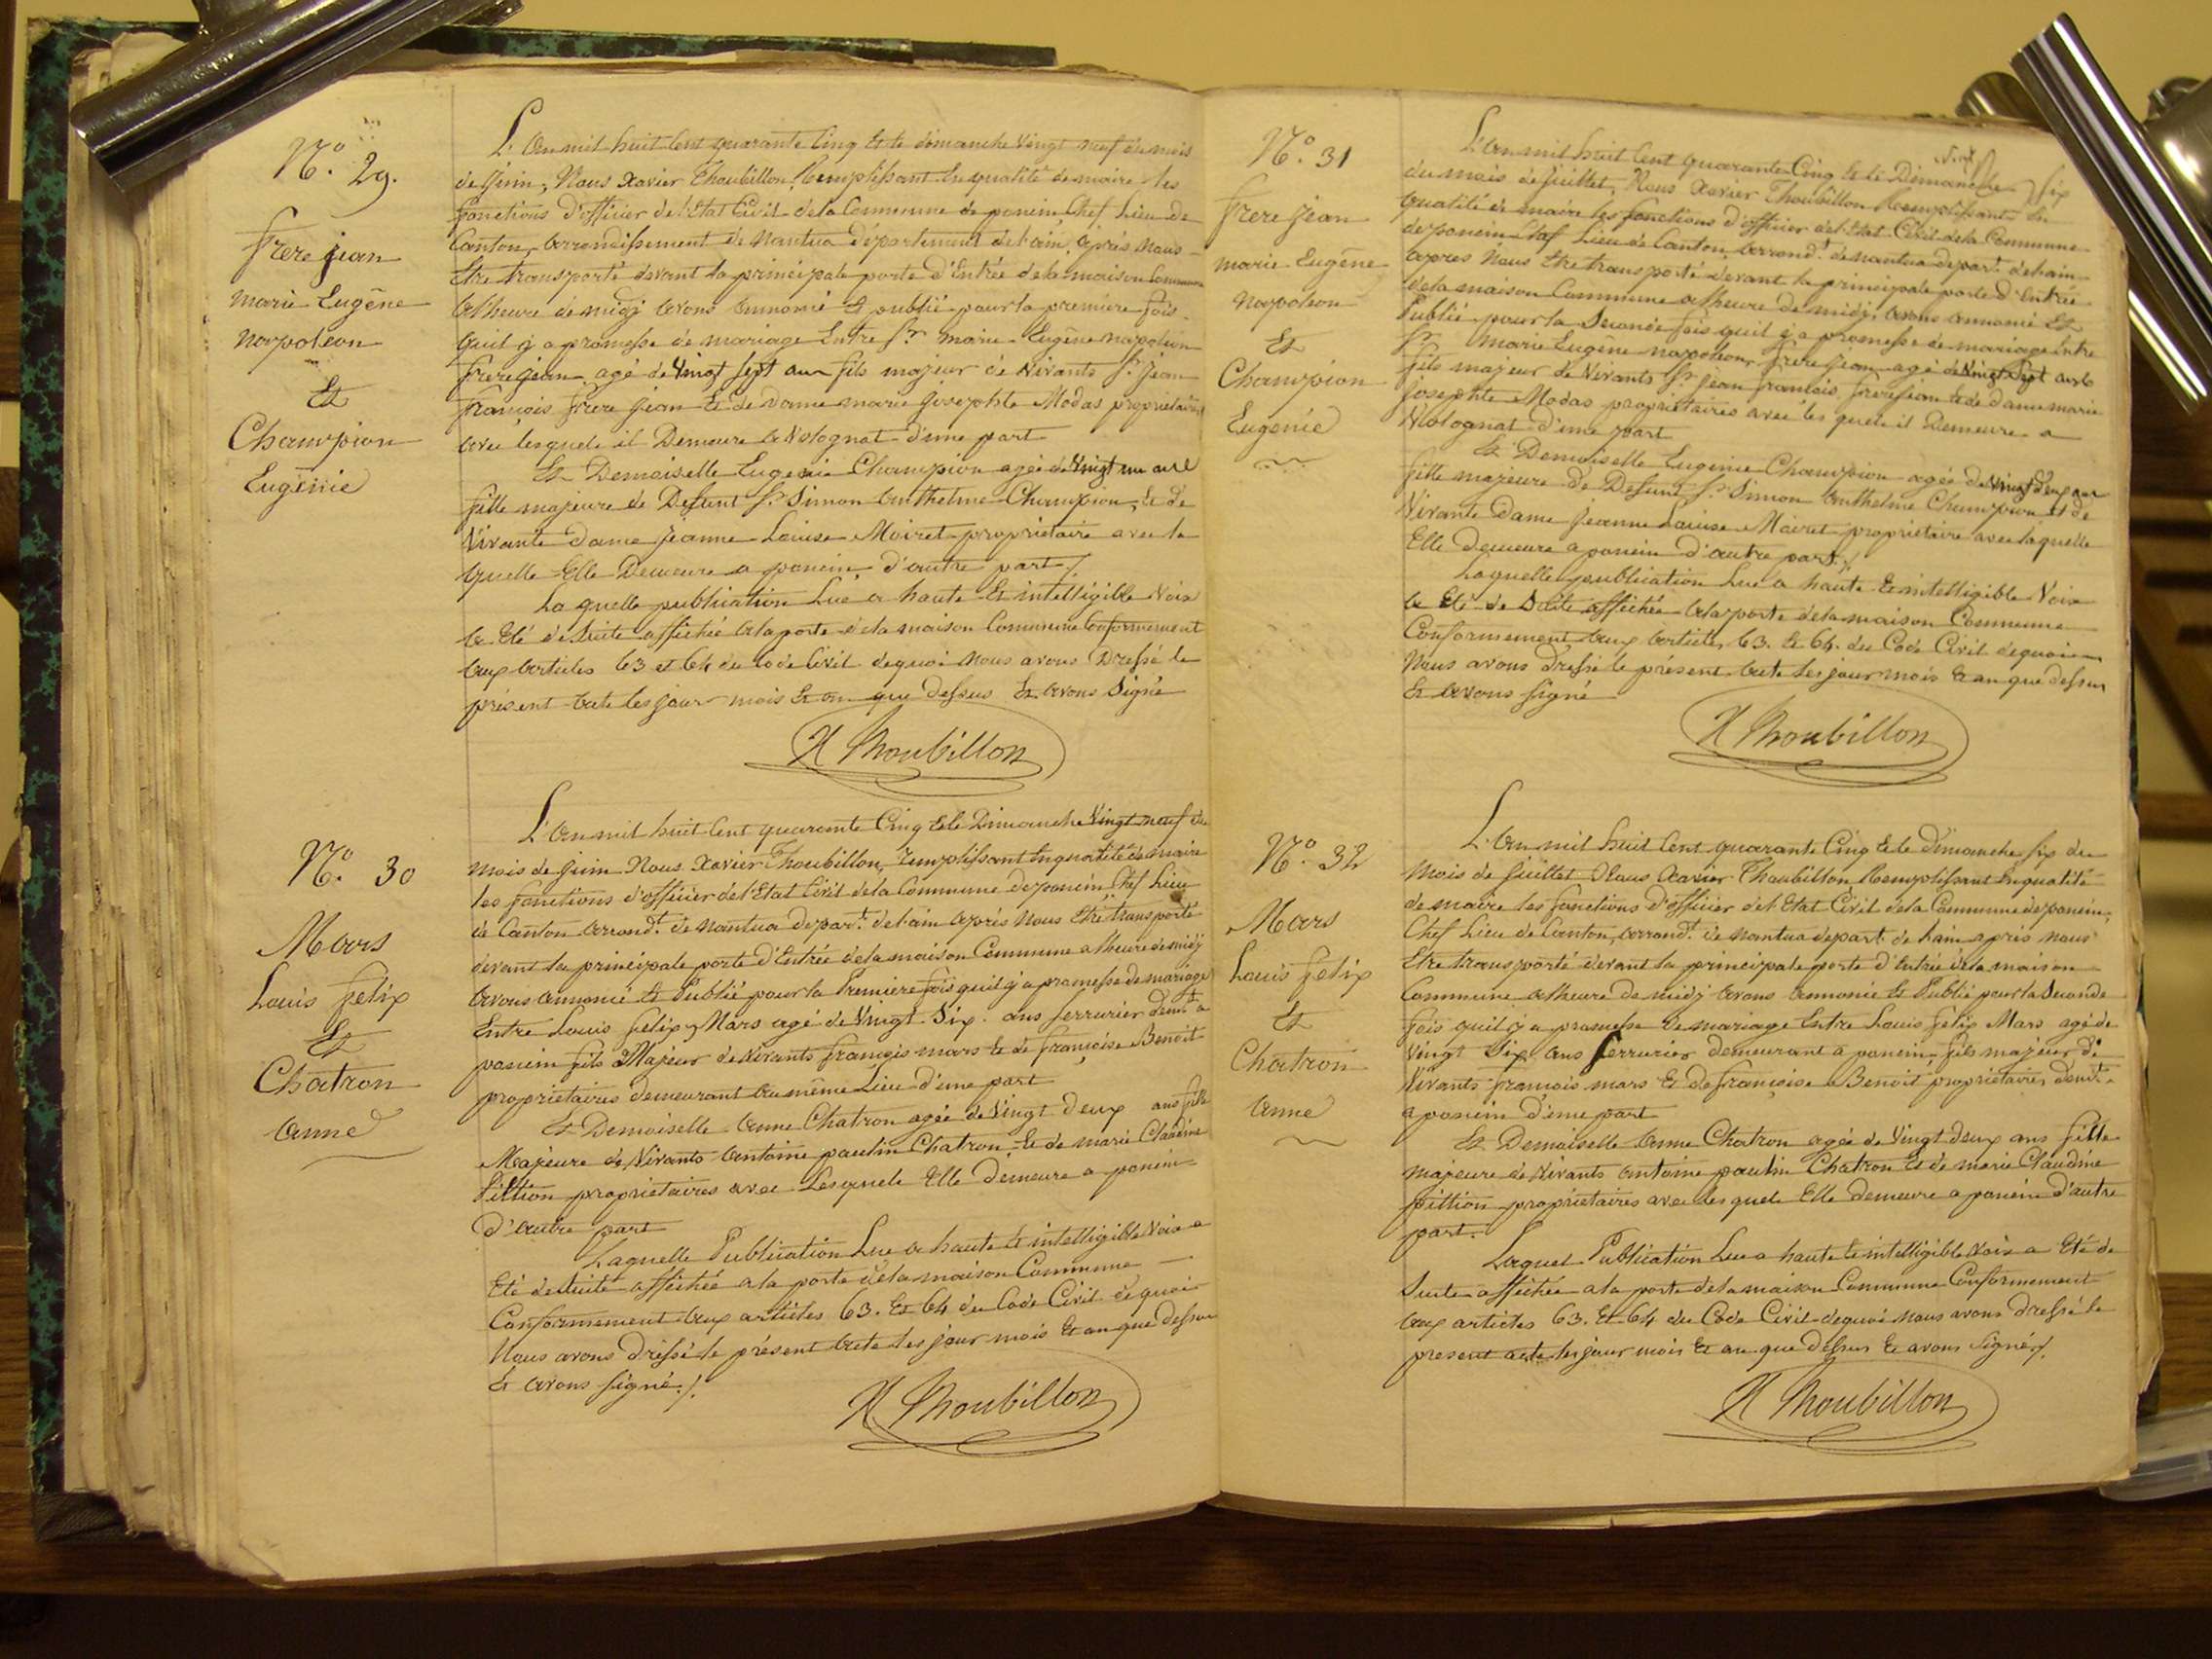 N.º 29.
frere jean
marie Eugêne
napoleon
Et
Champion
Eugénie
L'an mil huit Cent quarante Cinq Et le dimanche Vingt neuf du mois
de Juin, Nous Xavier Thoubillon, Remplissant En qualité de maire les
fonctions d'officier de l'Etat Civil de la Commune de poncin Chef Lieu de
Canton, arrondissement de Nantua département de l'ain, après nous
Etre transporté devant la principale porte d'Entrée de la maison Commune
a l'heure de midj avons annoncé Et publié pour la premiere fois
quil y a promesse de mariage Entre Sr. marie Eugêne napoléon
frere jean agé de Vingt Sept ans fils majeur de Vivants Sr. jean
françois frere jean Et de Dame marie josephte Modas propriétaires
avec lesquels il Demeure a Volognat d'une part
Et Demoiselle Eugenie Champion agée de Vingt un ans
fille majeure de Defunt Sr. Simon anthelme Champion, Et de
Vivante dame jeanne Louise Moiret propriétaire avec la
quelle Elle Demeure a poncin d'autre part /
La quelle publication Lue a haute Et intelligible Voix
a Eté de Suite affichée a la porte de la maison Commune Conformement
aux articles 63 et 64 du Code Civil de quoi nous avons Dressé le
présent acte les jour mois Et an que dessus Et avons Signé
X Thoubillon
N.º 30
Mars
Louis felix
Et
Chatron
anne
L'an mil huit Cent quarante Cinq Et le Dimanche Vingt neuf du
mois de juin Nous Xavier Thoubillon, remplissant En qualité de maire
les fonctions d'officier de l'Etat Civil de la Commune de poncin Chef Lieu
de Canton arrondt. de nantua depart. de l'ain après nous Etre transporté
devant la principale porte d'Entrée de la maison Commune a l'heure de midj
avons annoncé Et Publié pour la Premiere fois quil y a promesse de mariage
Entre Louis felix Mars agé de Vingt Six ans Serrurier demt. a
poncin fils Majeur de Vivants françois mars Et de françoise Benoit
propriétaires demeurant au même Lieu d'une part
Et Demoiselle anne Chatron agée de Vingt Deux ans fille
Majeure de Vivants antoine paulin Chatron Et de marie Claudine
Pittion propriétaires avec Lesquels Elle Demeure a poncin
d'autre part
Laquelle Publication Lue a haute Et intelligible Voix a
Eté de Suite affichée a la porte de la maison Commune
Conformement aux articles 63. Et 64 du Code Civil de quoi
Nous avons dressé le présent acte les jour mois Et an que dessus
Et avons Signé /.
X Thoubillon
N.º 31
frere jean
marie Eugêne
napoleon
Et
Champion
Eugénie
L'an mil huit Cent quarante Cinq Et le Dimanche six
du mois de Juillet, Nous Xavier Thoubillon Remplissant En
qualité de maire les fonctions d'officier de l'Etat Civil de la Commune
de poncin Chef Lieu de Canton arrondt. de nantua depart. de l'ain
après Nous Etre transporté devant la principale porte d'Entrée
de la maison Commune a l'heure de midj, avons annoncé Et
Publié pour la Seconde fois quil y a promesse de mariage Entre
Sr. Marie Eugêne napoleon, frere jean agé de Vingt Sept ans
fils majeur de Vivants Sr. jean francois frere jean Et de dame marie
josephte Modas propriétaires avec les quels il Demeure a
Volognat d'une part
Et Demoiselle Eugenie Champion agée de Vingt deux ans
fille majeure de Defunt Sr. Simon anthelme Champion Et de
Vivante Dame jeanne Louise Moiret propriétaire avec laquelle
Elle demeure a poncin d'autre part /
Laquelle publication Lue a haute Et intelligible Voix
a Eté de Suite affichée a la porte de la maison Commune
Conformement aux articles 63. Et 64. du Code Civil de quoi
Nous avons dressé le présent acte les jour mois Et an que dessus
Et avons Signé
X Thoubillon
N.º 32
Mars
Louis felix
Et
Chatron
anne
L'an mil huit Cent quarante Cinq Et le dimanche six du
Mois de Juillet Nous Xavier Thoubillon Remplissant En qualité
de maire les fonctions d'officier de l'Etat Civil de la Commune de poncin,
Chef Lieu de Canton, arrondt. de nantua depart. de l'ain après nous
Etre transporté devant la principale porte d'Entrée de la maison
Commune a l'heure de midj avons annoncé Et Publié pour la Seconde
fois quil y a promesse de mariage Entre Louis felix Mars agé de
Vingt Six ans Serrurier demeurant a poncin, fils majeur de
Vivants francois mars Et de françoise Benoit propriétaires demt.
a poncin d'une part
Et Demoiselle anne Chatron agée de Vingt deux ans fille
majeure de Vivants antoine paulin Chatron Et de marie Claudine
pittion propriétaires avec les quels Elle demeure a poncin d'autre
part.
Laquel Publication Lue a haute Et intelligible Voix a Eté de
Suite affichée a la porte de la maison Commune Conformement
aux articles 63. Et 64 du Code Civil de quoi nous avons dressé le
present acte les jour mois Et an que dessus Et avons Signé /.
X Thoubillon